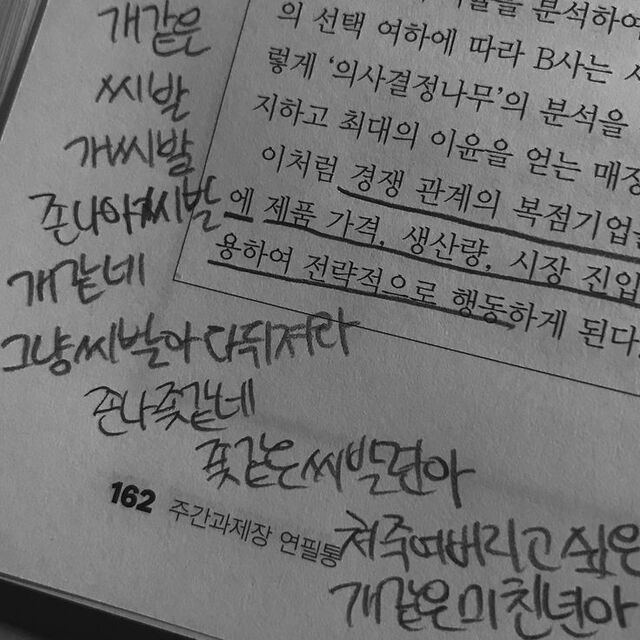 을 분석하여
의 선택 여하에 따라 B사는 시
렇게 '의사결정나무'의 분석을
지하고 최대의 이윤을 얻는 매장
이처럼 경쟁 관계의 복점기업
에 제품 가격, 생산량, 시장 진입
용하여 전략적으로 행동하게 된다
개같은
씨발
개씨발
존나아씨발
개같네
그냥 씨발아 다뒤져라
존나좆같네
좆같은 씨발련아
162 주간과제장 연필통
쳐죽여버리고싶은
개같은미친년아